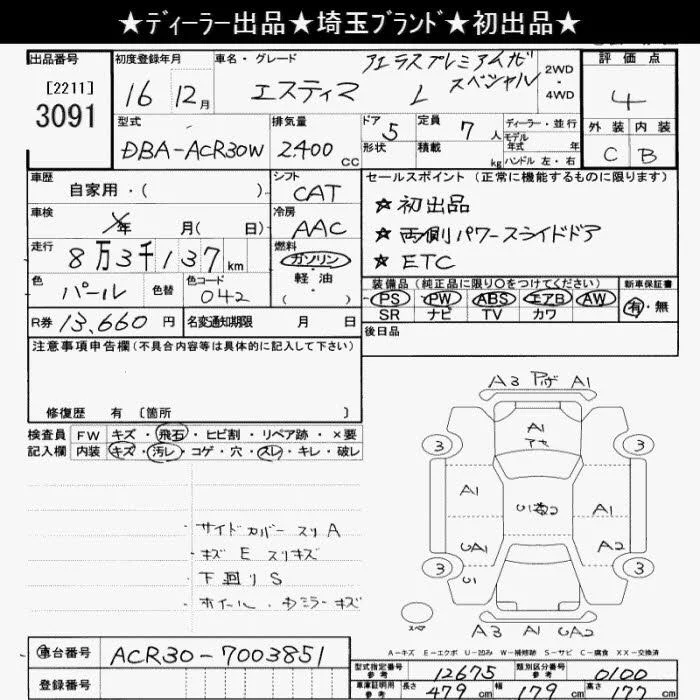 ★ディーラー出品★埼玉ブランド★初出品★
出品番号 初度登録年月 車名・グレード 評価点
[2211]
3091
16 12月 エスティマ L アエラスプレミアムナビスペシャル 2WD・4WD 4
型式 排気量 ドア 定員 ディーラー・並行 外装 内装
DBA-ACR30W 2400cc 5 7人 モデル年式 年 C B
形状 積載 kg ハンドル 左・右
車歴 シフト セールスポイント(正常に機能するものに限ります)
自家用・( ) CAT ★初出品
車検 年 月( 日) 冷房 AAC ★両側パワースライドドア
走行 8万3千137km 燃料 ガソリン ★ETC
軽油
( )
色 パール 色替 色コード 042
装備品(純正品に限り○をつけてください) 新車保証書
PS PW ABS エアB AW 有・無
SR ナビ TV カワ
R券 13,660円 名変通知期限 月 日 後日品
注意事項申告欄(不具合内容等は具体的に記入して下さい)
修復歴 有 〔箇所 〕
検査員記入欄 FW キズ・飛石・ヒビ割・リペア跡・×要
内装 キズ・汚レ・コゲ・穴・スレ・キレ・破レ
サイドカバー スリA
キズ E スリキズ
下回りS
ホイール・ キズ
A3 A1
A1
3 3
A1 A1
UA1 A2
U1
3 3
スペア
A3 A1 UA2
A-キズ E-エクボ U-凹み W-補修跡 S-サビ C-腐食 XX-交換済
車台番号 ACR30-7003851
登録番号
型式指定番号 参考 12675 類別区分番号 参考 0100
車庫証明用 参考 長さ 479cm 幅 179cm 高さ 177cm